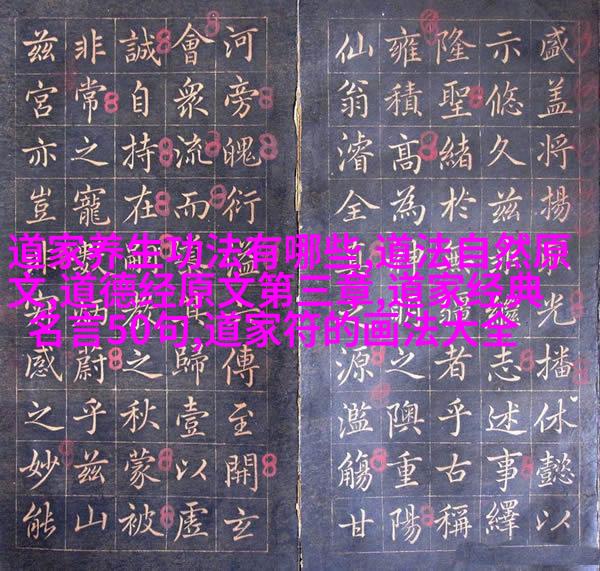 盛盖将揚光播休懿以
示悠久兹繼志述事繹
隆聖緒於無疆者乎古稱
雍積高為神明之隩重陽
仙翁濬全真之源濫觴甘
河旁魄衍溢傳至開玄
會衆流而其歸壹以虛
誠自持在教之秋蒙被
非常之寵數炳蔚乎兹山
兹宮亦豈感之妙能
道家养生功法有哪些,道法自然原
文,道德经原文第三章,道家经典
名言50句,道家符的画法大全